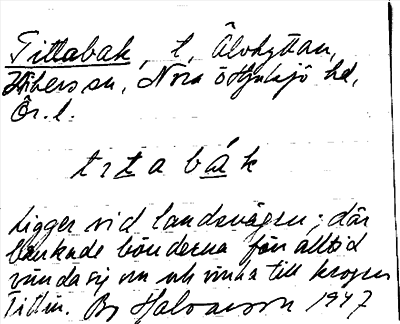 Tittabak, t, Älvhyttan,
Vikers sn, Nora o Hjulsjö hd,
Ör. l.
t ɩ t a b á k
Ligger vid landsvägen; där
brukade bönderna förr alltid
vända sig om och vinka till krogen
Tittin. By Halvarsson 1947